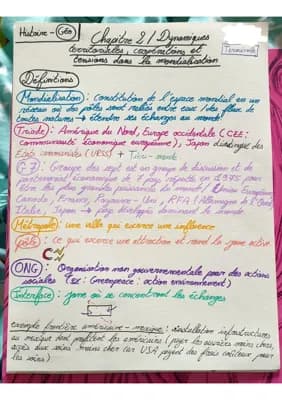 Histoire - Géo
Chapitre 2 / Dynamiques
territoriales, coopérations et
tensions dans la mondialisation
Terminale
Définitions
Mondialisation : constitution de l'espace mondial en un
réseau où des pôles sont reliés entre eux / des flux de
toutes natures → étendre ses échanges au monde !
Triade : Amérique du Nord, Europe occidentale (CEE :
communauté économique européenne), Japon
États communistes (URSS) + Tiers-monde
G7 : Groupe des sept est un groupe de discussion et de
économique de 7 pays
être les plus grandes puissances du monde / Union Européenne
Canada, France, Royaume-Uni, RFA (Allemagne de l'Ouest
Italie, Japon → pays dominant le monde.
Métropole : une ville qui exerce une influence
Pôle : ce qui exerce une attraction et rend la zone active.
ONG : Organisation non gouvernementale pour des actions
sociales (ex : Greenpeace : action environnement)
Interface : zone où se concentrent les échanges
exemple frontière américaine - mexique : installation infrastructures
au mexique dont profitent les américains (payer les ouvriers moins chers,
accès aux soins moins cher car USA payent des frais coûteux pour
les soins)